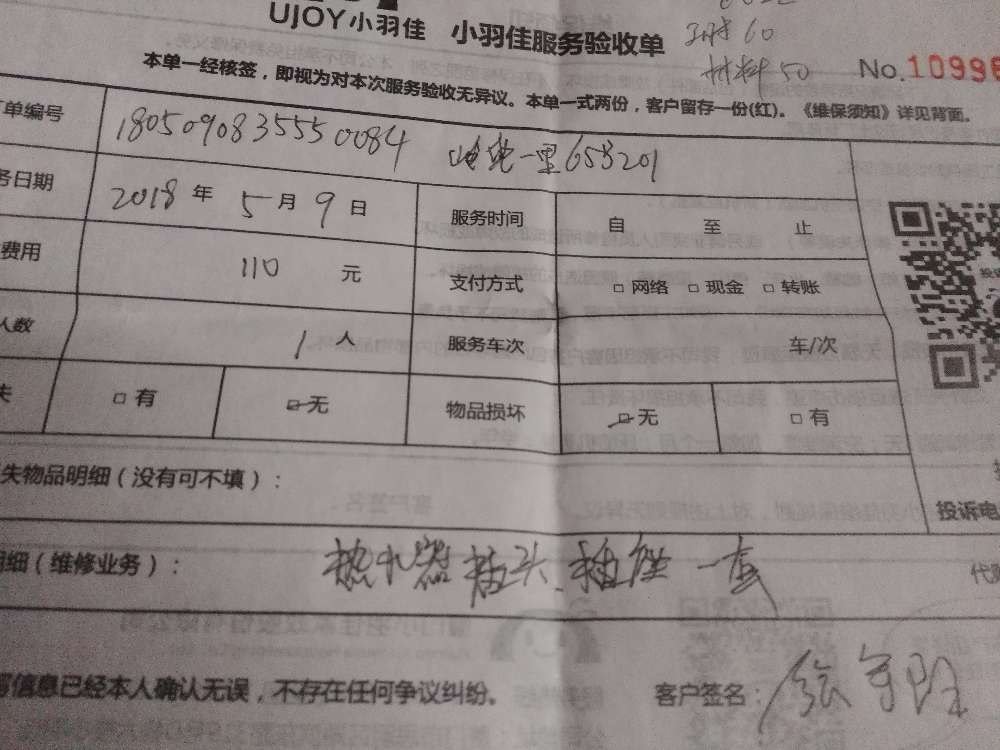 UJOY小羽佳 小羽佳服务验收单
60
材料50
No.10996
本单一经核签，即视为对本次服务验收无异议。本单一式两份，客户留存一份(红)。《维保须知》详见背面。
单编号 18050908355550084 一里65号201
务日期 2018 年 5 月 9 日 服务时间 自 至 止
费用 110 元 支付方式 □网络 □现金 □转账
人数 1 人 服务车次 车/次
失 □有 □无 物品损坏 □无 □有
失物品明细（没有可不填）：
投诉电
明细（维修业务）： 热水器插头、插座一套
代
信息已经本人确认无误，不存在任何争议纠纷。 客户签名：